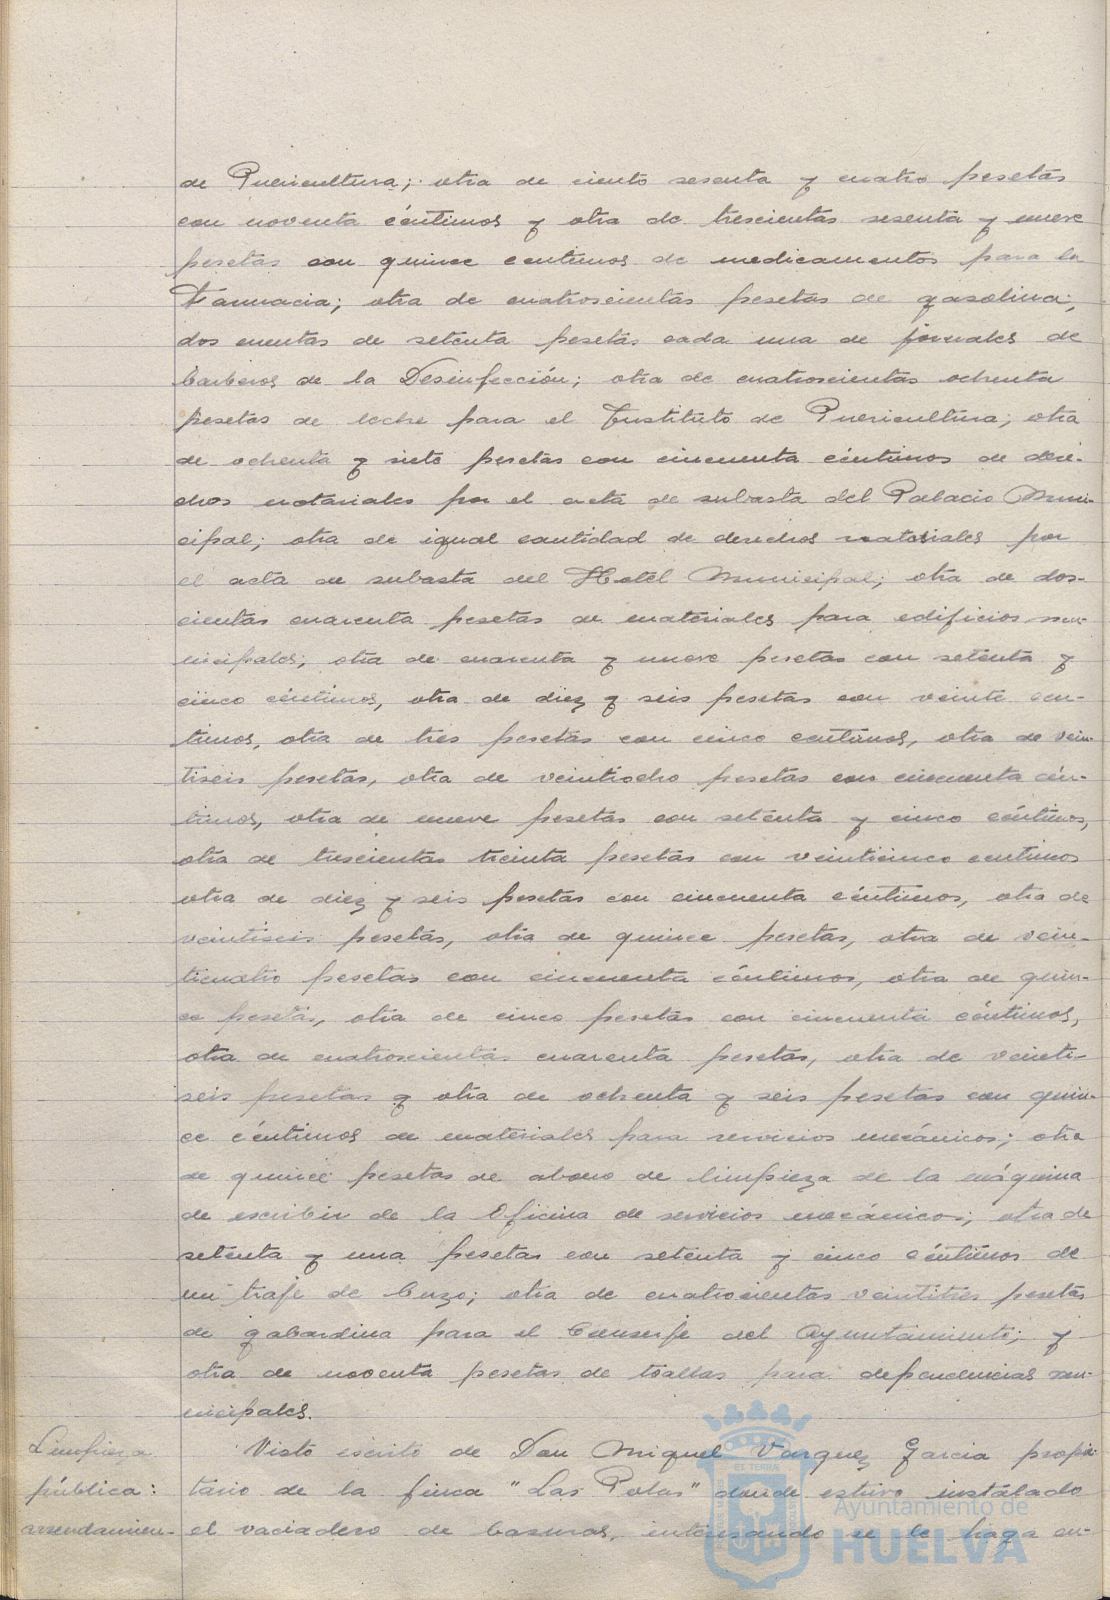 de Puericultura; otra de ciento sesenta y cuatro pesetas
con noventa céntimos y otra de trescientas sesenta y nueve
pesetas con quince centimos de medicamentos para la
Farmacia; otra de cuatrocientas pesetas de gasolina;
dos cuentas de setenta pesetas cada una de jornales de
barberos de la Desinfección; otra de cuatroscientas ochenta
pesetas de leche para el Instituto de Puericultura; otra
de ochenta y siete pesetas con cincuenta céntimos de dere-
chos notariales por el acta de subasta del Palacio Muni-
cipal; otra de igual cantidad de derechos notariales por
el acta de subasta del Hotel Municipal; otra de dos-
cientas cuarenta pesetas de materiales para edificios mu-
nicipales; otra de cuarenta y nueve pesetas con setenta y
cinco céntimos, otra de diez y seis pesetas con veinte cen-
timos, otra de tres pesetas con cinco centimos, otra de vein-
tiseis pesetas, otra de veintiocho pesetas con cincuenta cén-
timos, otra de nueve pesetas con setenta y cinco céntimos,
otra de trescientas treinta pesetas con veinticinco centimos
otra de diez y seis pesetas con cincuenta céntimos, otra de
veintiseis pesetas, otra de quince pesetas, otra de vein-
ticuatro pesetas con cincuenta céntimos, otra de quin-
ce pesetas, otra de cinco pesetas con cincuenta céntimos,
otra de cuatroscientas cuarenta pesetas, otra de veinti-
seis pesetas y otra de ochenta y seis pesetas con quin-
ce céntimos de materiales para servicios mecánicos; otra
de quince pesetas de abono de limpieza de la máquina
de escribir de la Oficina de servicios mecánicos; otra de
setenta y una pesetas con setenta y cinco céntimos de
un traje de buzo; otra de cuatrocientas veintitres pesetas
de gabardina para el Conserje del Ayuntamiento; y
otra de noventa pesetas de toallas para dependencias mu-
nicipales.
Limpieza Visto escrito de Don Miguel Vazquez Garcia propie-
pública: tario de la finca "Las Polas" donde estuvo instalado
arrendamien- el vaciadero de basuras, interesando se le haga en-
ET TERRA
Ayuntamiento de
HUELVA